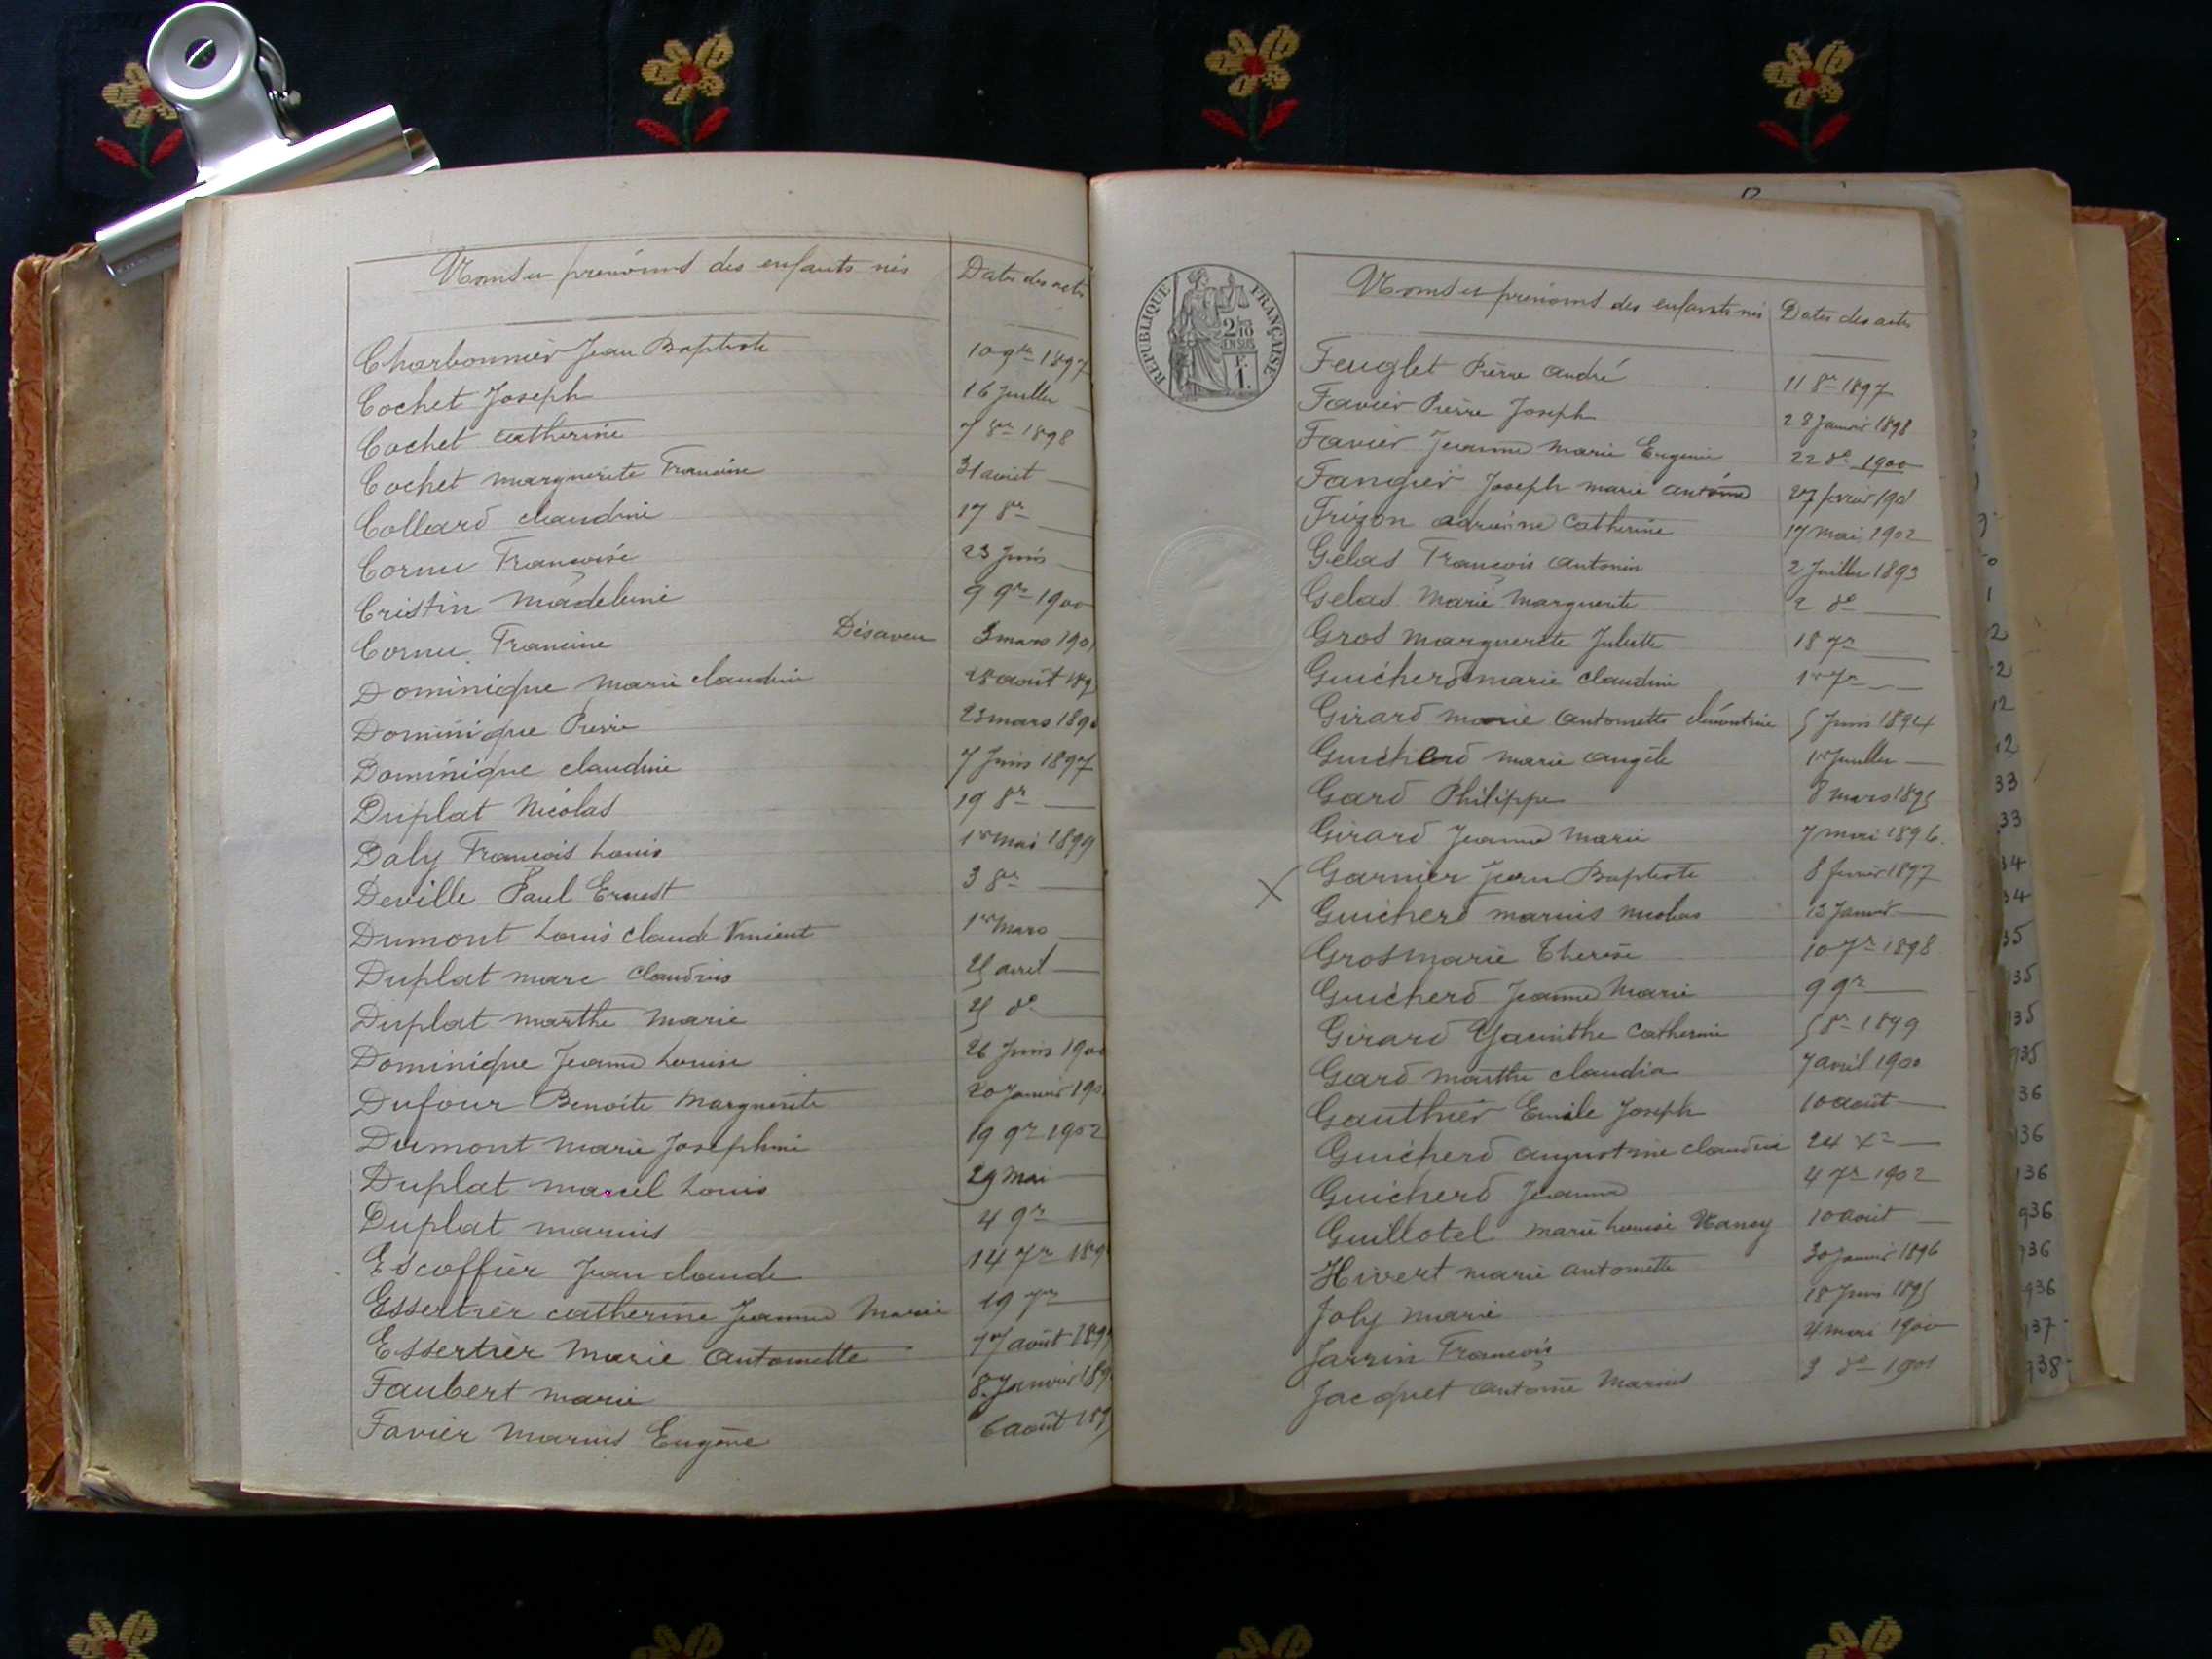 Noms et prénoms des enfants nés Dates des actes
Charbonnier Jean Baptiste 10 9bre 1897
Cochet Joseph 16 Juillet —
Cochet Catherine 7 8re 1898
Cochet marguerite Francine 31 août —
Collard claudine 17 8re —
Cornu Françoise 23 Juin —
Cristin Madeleine 9 9re 1900
Cornu Francine Désaveu 3 mars 190
Dominique Marie claudine 28 août 189
Dominique Pierre 23 mars 189
Dominique claudine 7 Juin 1897
Duplat Nicolas 19 8re —
Daly François Louis 1er mai 1899
Deville Paul Ernest 3 8re —
Dumont Louis Claude Vincent 1er Mars —
Duplat marc Claudius 25 avril —
Duplat marthe Marie 25 do —
Dominique Jeanne Louise 26 Juin 190
Dufour Benoite Marguerite 20 Janvier 190
Dumont Marie Josephine 19 9re 1902
Duplat marcel Louis 29 Mai —
Duplat marius 4 9re —
Escoffier Jean claude 14 7re 189
Essertier catherine Jeanne Marie 19 7re —
Essertier Marie Antoinette août 189
Faubert marie 8 Janvier 189
Favier Marius Eugène 6 août 189
REPUBLIQUE FRANÇAISE
2/10
EN SUS
F.
1.
Noms et prénoms des enfants nés Dates des actes
Feuglet Pierre André 11 8re 1897
Favier Pierre Joseph 28 Janvier 1898
Favier Jeanne Marie Eugenie 22 do 1900
Fangier Joseph marie antoine 27 fevrier 1901
Frizon adrienne Catherine 17 mai 1902
Gelas François Antonin 2 Juillet 1893
Gelas Marie Marguerite 2 do —
Gros Marguerite Juliette 18 7re —
Guicherd marie Claudine 1er 7re —
Girard marie Antoinette clémentine 5 Juin 1894
Guicherd marie Angèle 1er Juillet —
Gard Philippe 8 mars 1895
Girard Jeanne Marie 7 mai 1896
Garnier Jean Baptiste 8 fevrier 1897
X Guicherd marius nicolas 13 Janvier —
Gros marie Therèse 10 7re 1898
Guicherd Jeanne Marie 9 9re —
Girard Yacinthe Catherine 5 8re 1899
Gard marthe claudia 7 avril 1900
Gauthier Emile Joseph 10 août —
Guicherd augustine claudia 24 Xre —
Guicherd Jeanne 4 7re 1902
Guillotel marie Louise Nancy 10 août —
Hivert marie Antoinette 30 Janvier 1896
Joly marie 18 Juin 1895
Jarrin François 4 mai 1900
Jacquet Antoine Marius 3 do 1901